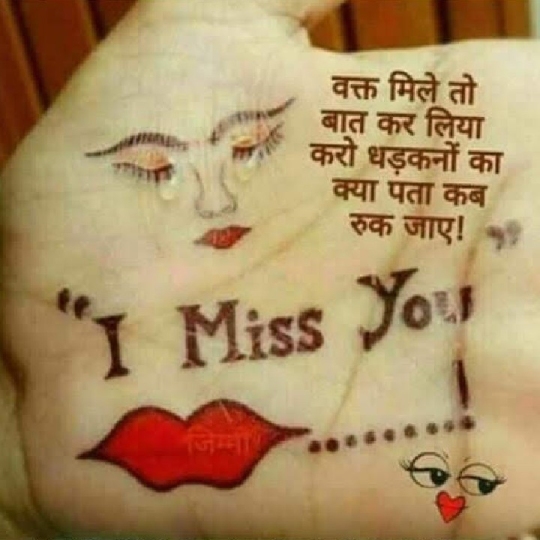 वक्त मिले तो
बात कर लिया
करो धड़कनों का
क्या पता कब
रुक जाए!
"I Miss You"
!